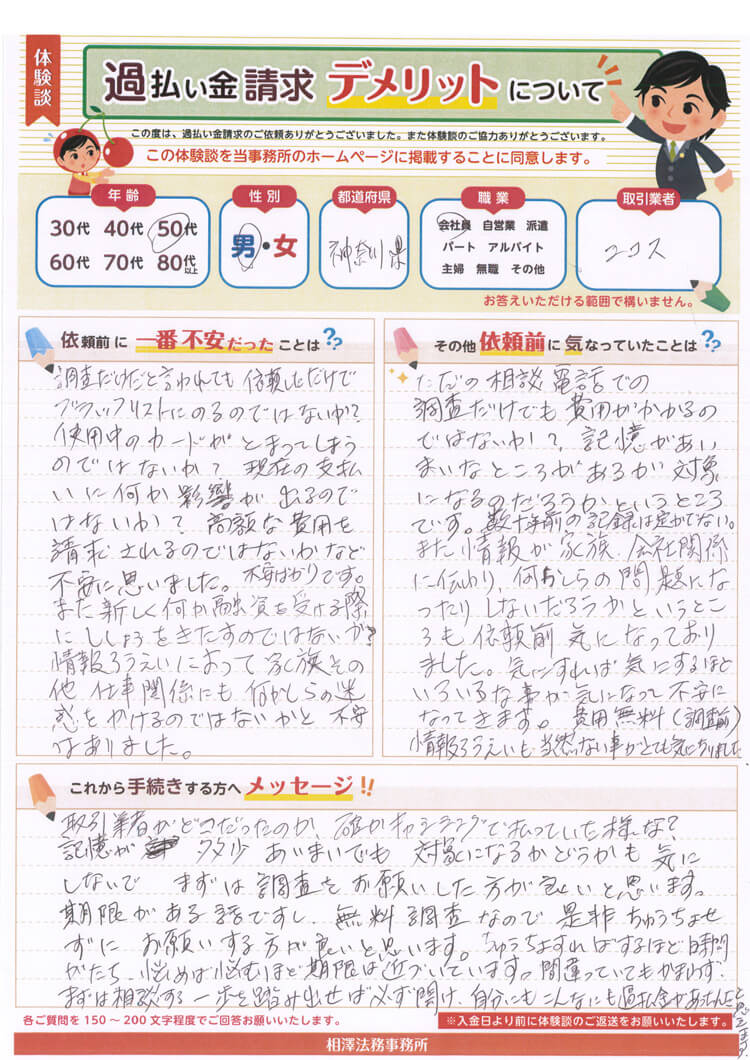 体験談
過払い金請求 デメリットについて
この度は、過払い金請求のご依頼ありがとうございました。また体験談のご協力ありがとうございます。
この体験談を当事務所のホームページに掲載することに同意します。
年齢
30代 40代 50代
60代 70代 80代以上
性別
男・女
都道府県
神奈川県
職業
会社員 自営業 派遣
パート アルバイト
主婦 無職 その他
取引業者
ニコス
お答えいただける範囲で構いません。
依頼前に 一番不安だった ことは??
調査だけだと言われても 依頼しただけで
ブラックリストにのるのではないか?
使用中のカードが とまってしまう
のでは ないか? 現在の支払
いに何か影響が 出るので
はないか? 高額な費用を
請求されるのではないかなど
不安に思いました。不安ばかりです。
また新しく何か融資を受ける際
に ししょうをきたすのではないか?
情報ろうえいによって 家族その
他 仕事関係にも 何かしらの迷
惑をかけるのではないかと 不安
はありました。
その他 依頼前に気なっていたことは??
ただの相談電話での
調査だけでも 費用がかかるの
ではないか?、記憶があい
まいなところがあるが 対象
になるのだろうかというところ
です。数十年前の記録は定かでない。
また 情報が家族、会社関係
に伝わり、何かしらの問題にな
ったりしないだろうか というとこ
ろも 依頼前 気になっており
ました。気にすれば気にするほど
いろいろな事が 気になって 不安に
なってきます。 費用無料(調査前)
情報ろうえいも 当然ない事がとても気になりました
これから手続きする方へ メッセージ!!
取引業者がどこだったのか、確かキャッシングで払っていた様な?
記憶が 多少 あいまいでも 対象になるかどうかも 気に
しないで まずは 調査を お願いした方が良いと思います。
期限がある話ですし、無料調査なので 是非 ちゅうちょせ
ずに お願いする方が良いと思います。ちゅうちょすればするほど時間
がたち、悩めば悩むほど 期限は近づいています。間違っていてもかまわず、
まずは相談する 一歩を踏み出せば必ず開け、自分にもこんなにも過払金があったんだ
各ご質問を150~200文字程度でご回答お願いいたします。
※入金日より前に体験談のご返送をお願いいたします。
相澤法務事務所